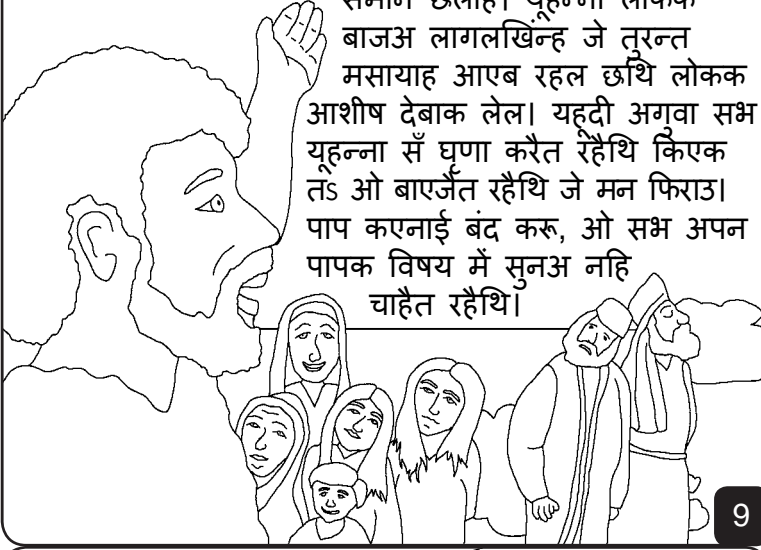 समान छलाह। यूहन्ना लोकक
बाजअ लागलखिन्ह जे तुरन्त
मसायाह आएब रहल छथि लोकक
आशीष देबाक लेल। यहूदी अगुवा सभ
यूहन्ना सँ घृणा करैत रहैथि किएक
तऽ ओ बाएजैत रहैथि जे मन फिराउ।
पाप कएनाई बंद करू, ओ सभ अपन
पापक विषय में सुनअ नहि
चाहैत रहैथि।
9